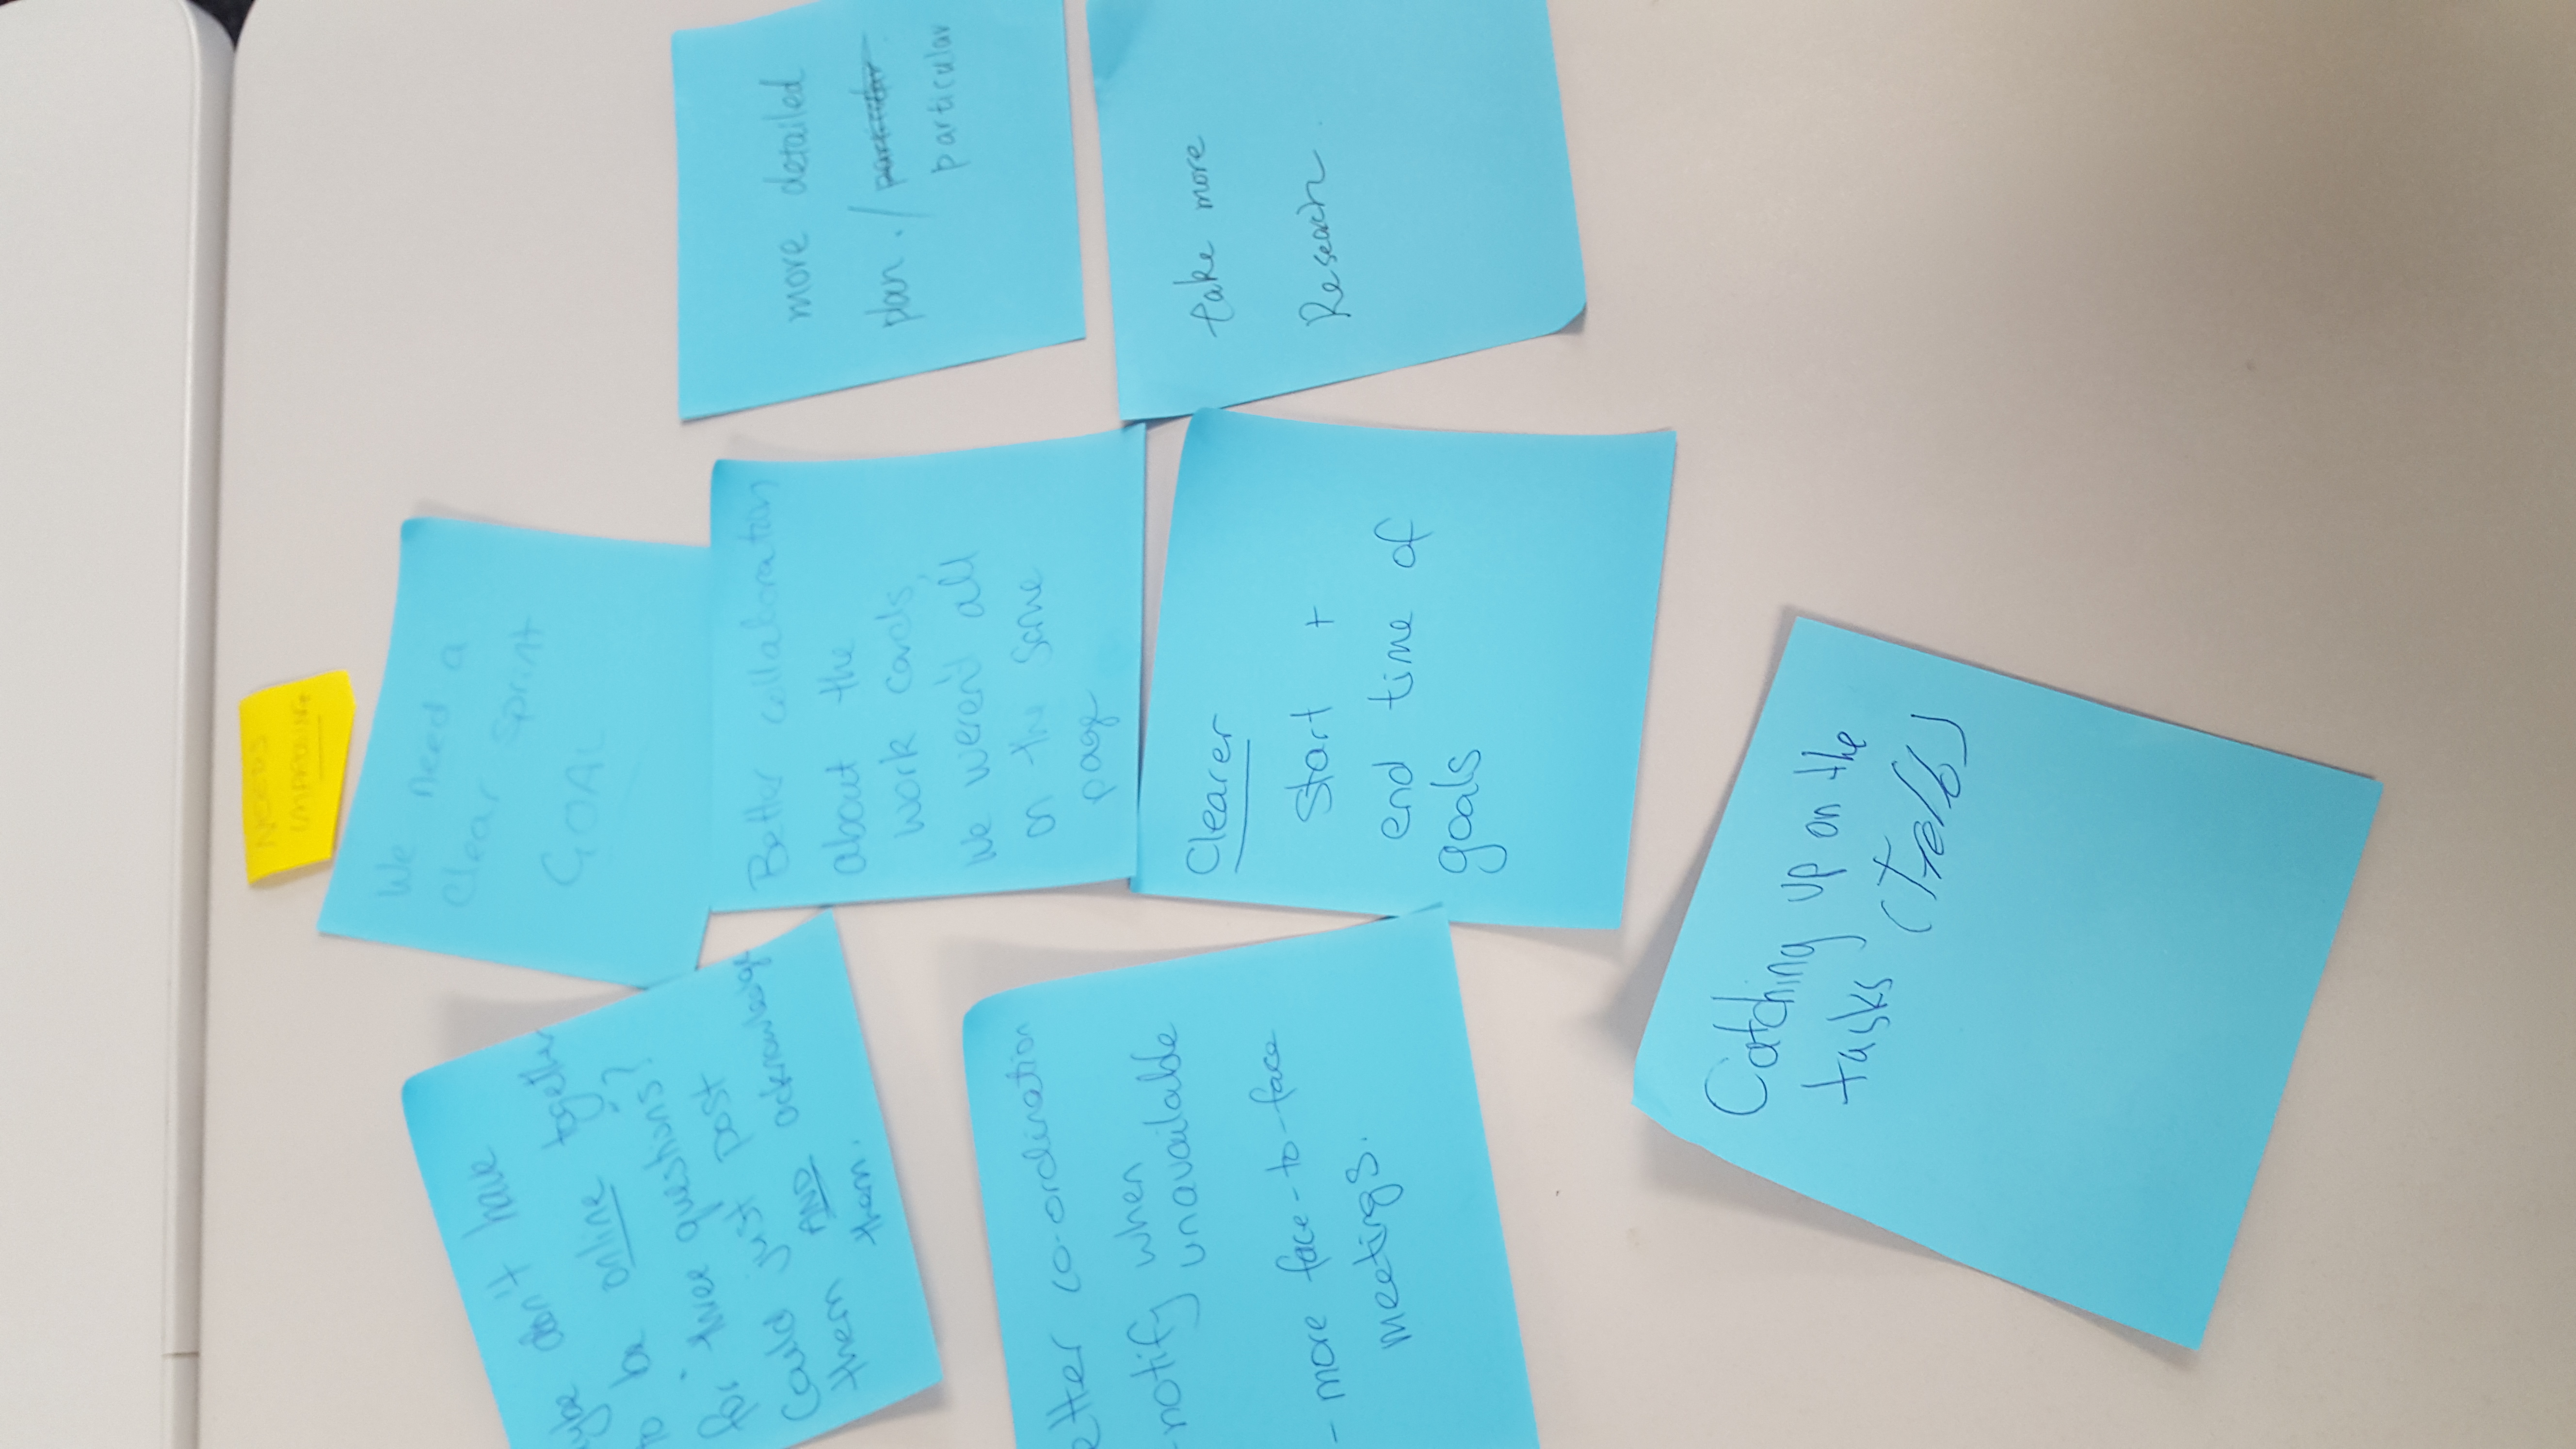 NEEDS
IMPROVING
We need a
clear sprint
GOAL
ybe don't have
to be online together
for "three questions"?
Could just post
them AND acknowledge
them.
Better collaboration
about the
work cards,
We weren't all
on the same
page
more detailed
plan. / particular
particular
etter co-ordination
-notify when
unavailable
- more face-to-face
meetings.
Clearer
Start +
end time of
goals
take more
Research.
Catching up on the
tasks (Trello)